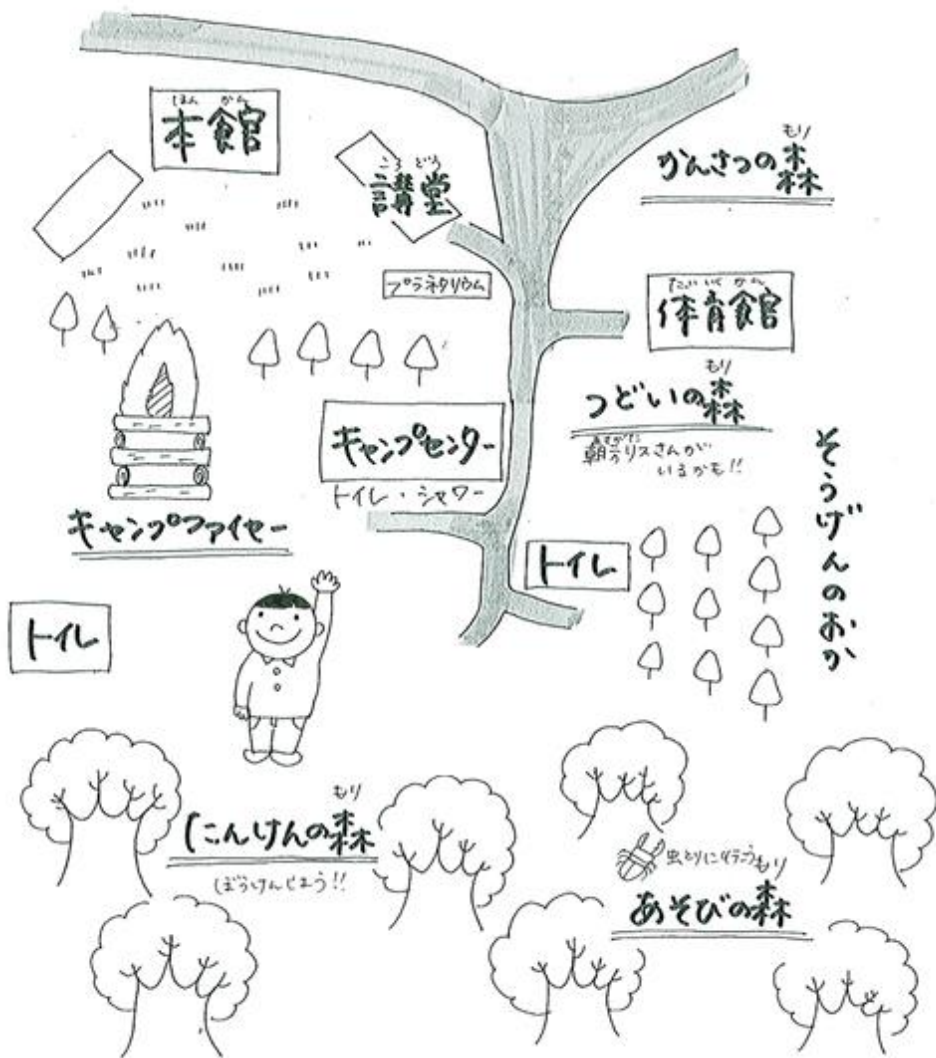 ほんかん
本館
こうどう
講堂
もり
かんさつの森
プラネタリウム
たいいくかん
体育館
もり
つどいの森
あさがた
朝方リスさんが
いるかも!!
キャンプセンター
トイレ・シャワー
キャンプファイヤー
トイレ
そうげんのおか
トイレ
もり
たんけんの森
ぼうけんしよう!!
虫とりに行こう
もり
あそびの森